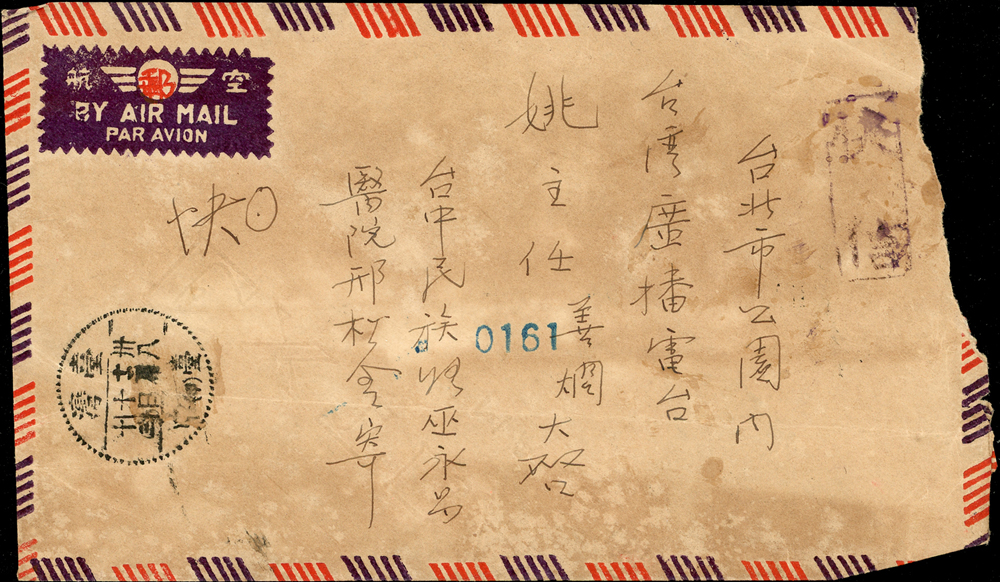 航郵空
BY AIR MAIL
PAR AVION
台北市公園內
台灣廣播電台
姚主任
善烱大啓
台中民族路巫永昌
醫院邢
寄
快
0161